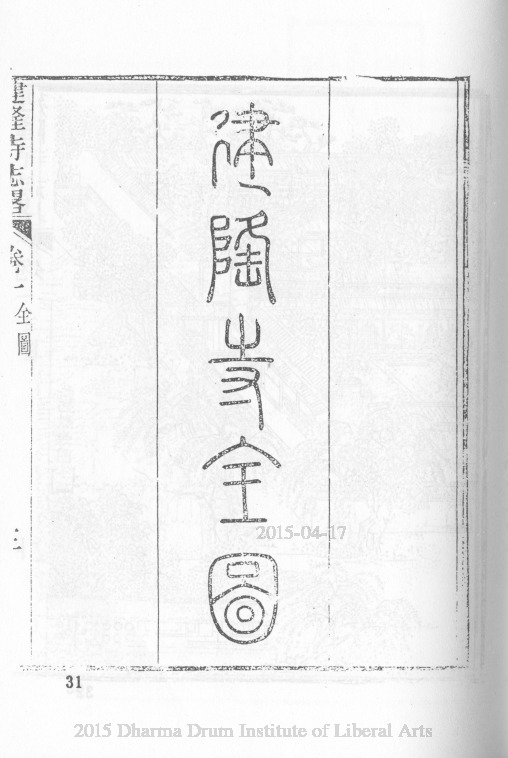 建隆寺全圖
2015-04-17
建隆寺志畧 卷一 全圖
31
2015 Dharma Drum Institute of Liberal Arts